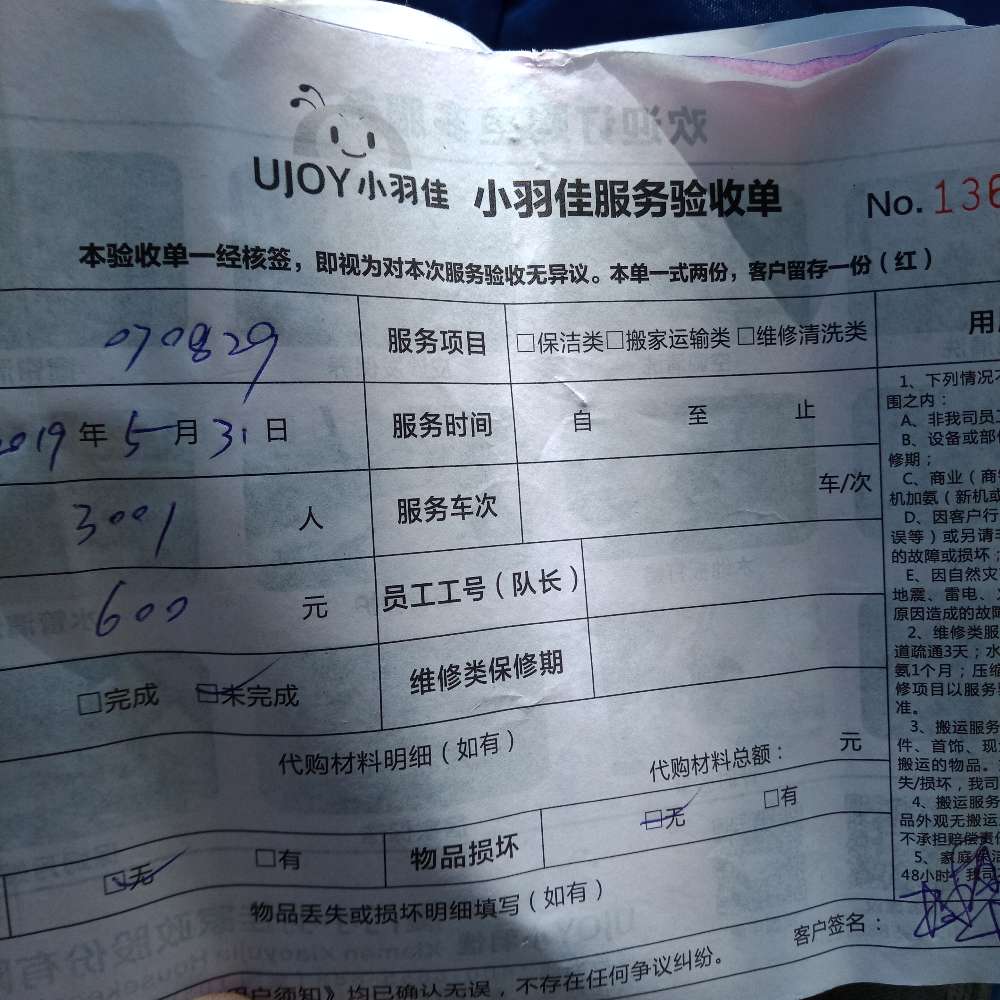 UJOY小羽佳 小羽佳服务验收单 No. 136
本验收单一经核签，即视为对本次服务验收无异议。本单一式两份，客户留存一份（红）
070829 服务项目 □保洁类□搬家运输类□维修清洗类
2019年5月31日 服务时间 自 至 止
3001 人 服务车次 车/次
600 元 员工工号（队长）
□完成 □未完成 维修类保修期
代购材料明细（如有） 代购材料总额： 元
□无 □有 物品损坏 □无 □有
物品丢失或损坏明细填写（如有）
客户签名：
均已确认无误，不存在任何争议纠纷。
用
1、下列情况
围之内：
A、非我司员
B、设备或部
修期；
C、商业（商
机加氨（新机或
D、因客户行
误等）或另请
的故障或损坏；
E、因自然灾
地震、雷电、
原因造成的故
2、维修类服
道疏通3天；水
氨1个月；压缩
修项目以服务
准。
3、搬运服务
件、首饰、现
搬运的物品。
失/损坏，我司
4、搬运服务
品外观无搬运
不承担赔偿责
5、家庭
48小时